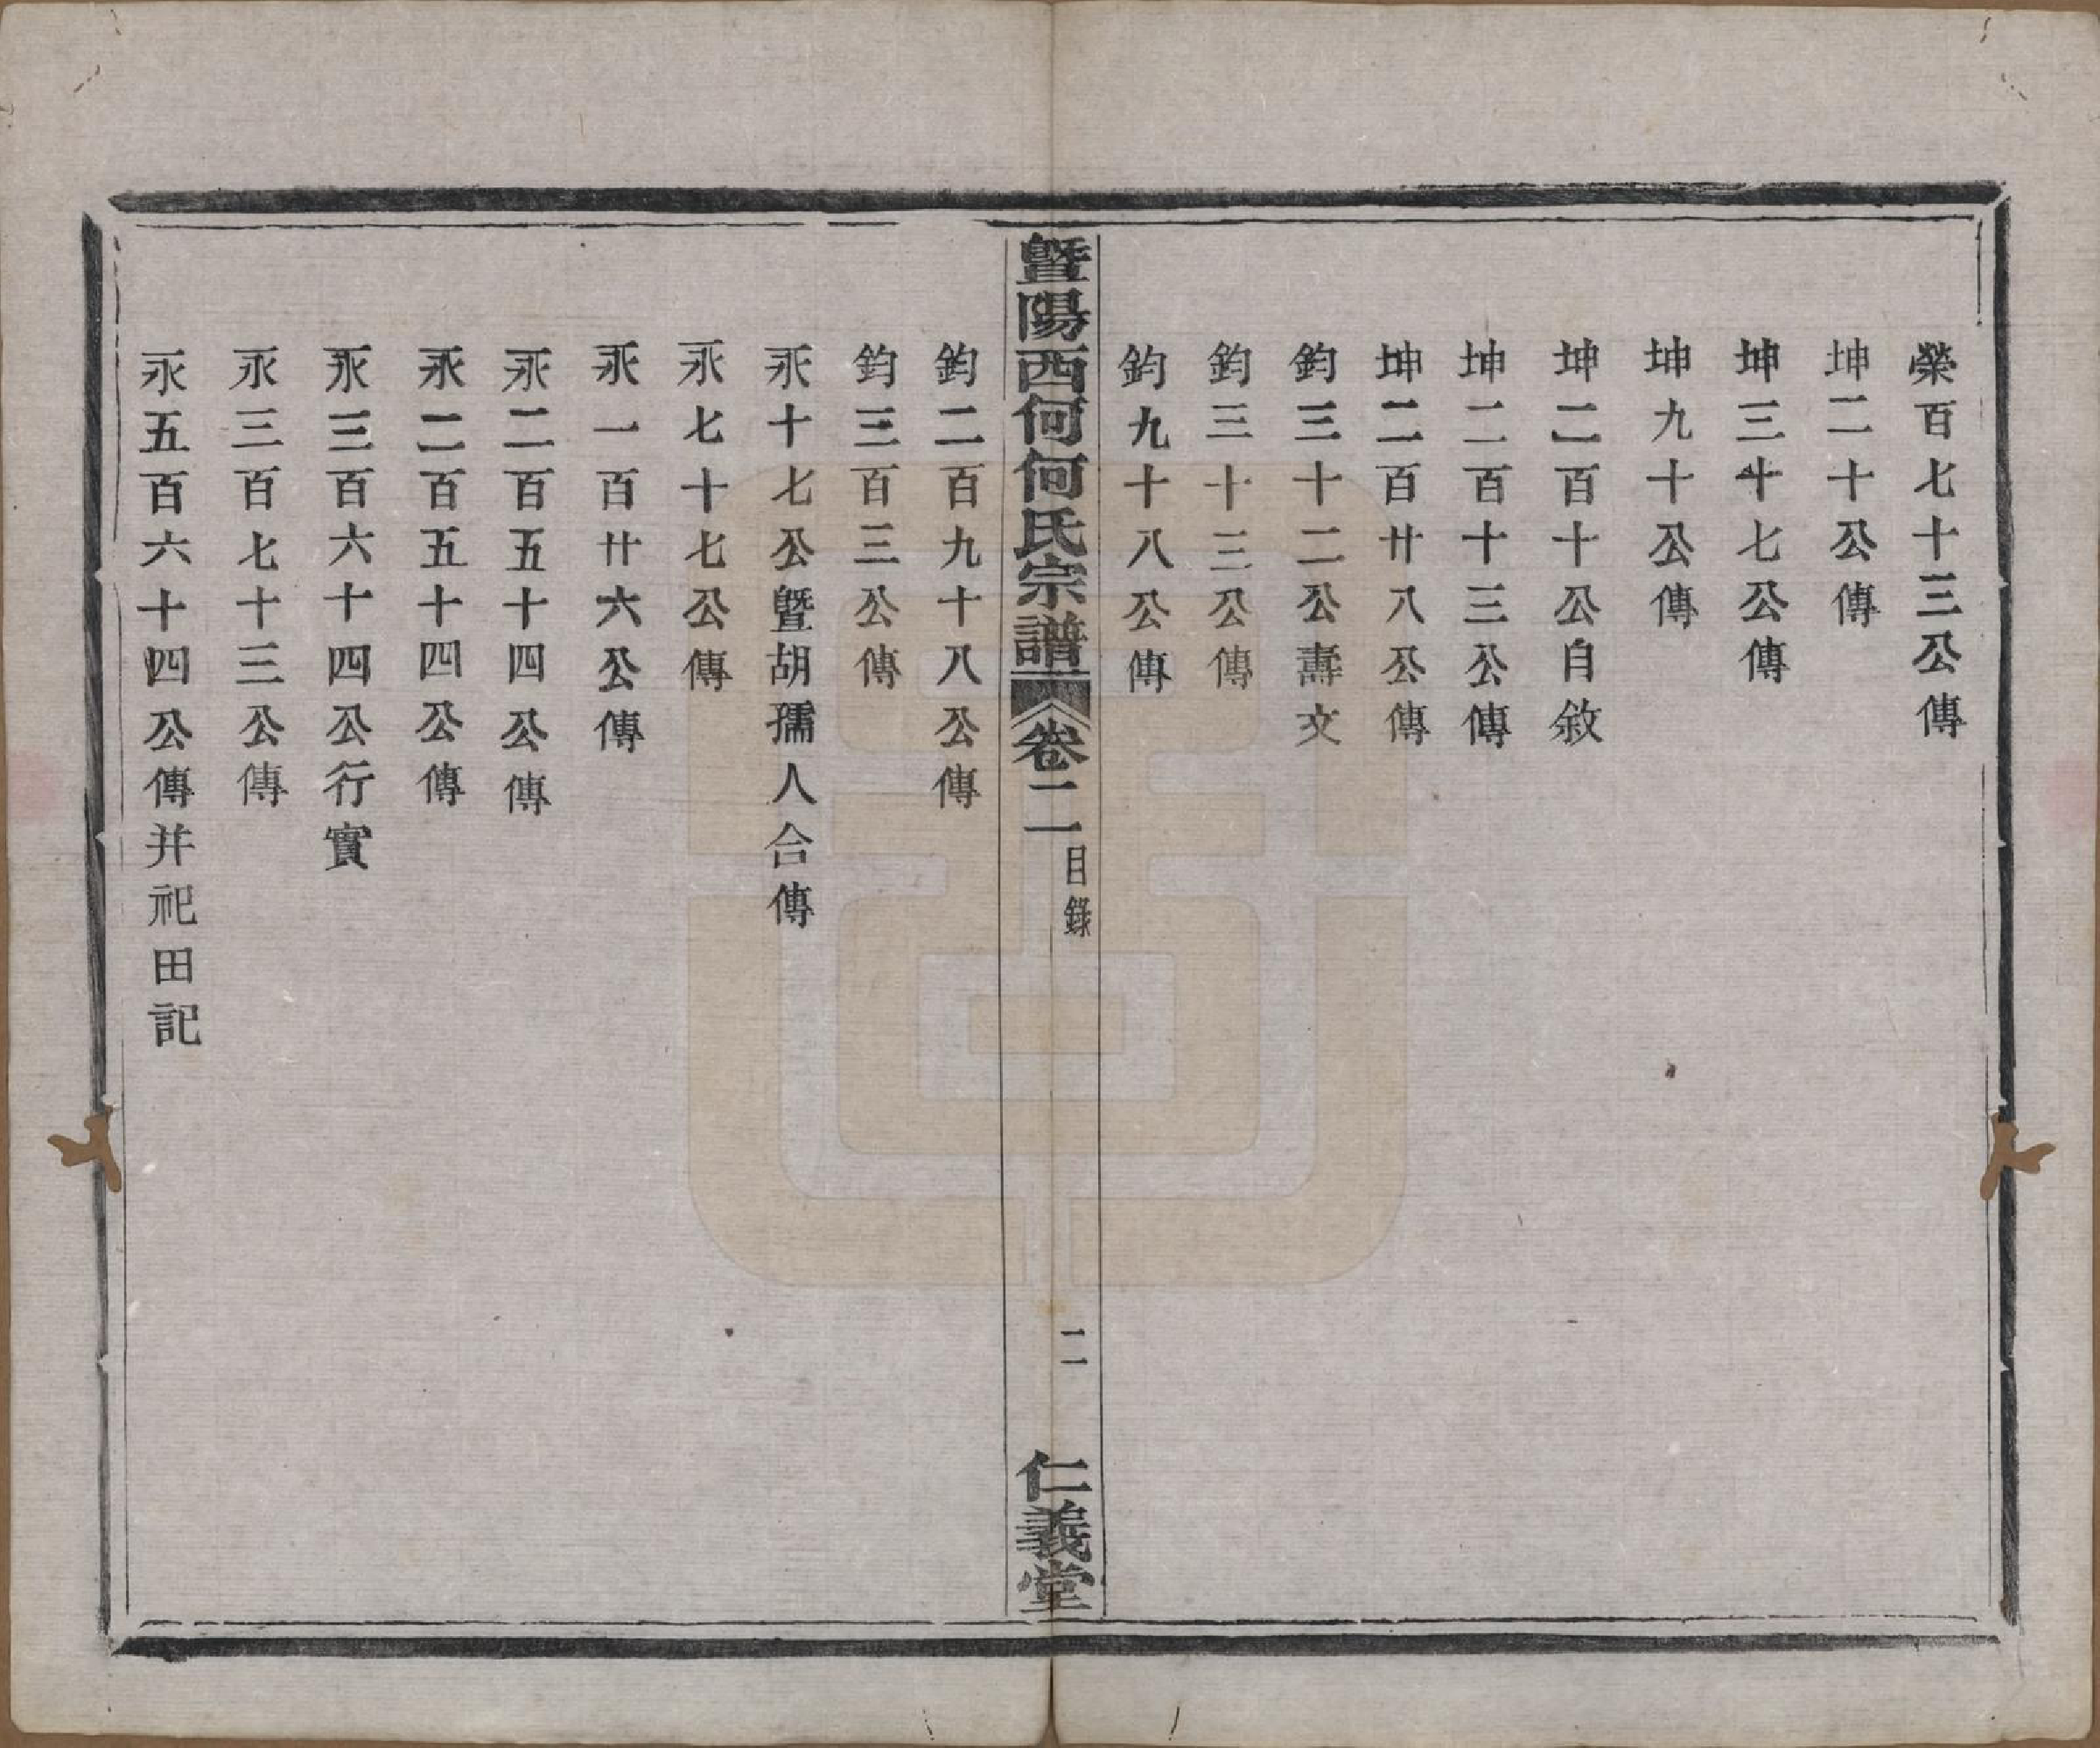 榮百七十三公傳
坤二十公傳
坤三十七公傳
坤九十公傳
坤二百十公自敘
坤二百十三公傳
坤二百廿八公傳
鈞三十二公壽文
鈞三十三公傳
鈞九十八公傳
暨陽西何何氏宗譜 卷二 目錄 二 仁義堂
鈞二百九十八公傳
鈞三百三公傳
永十七公暨胡孺人合傳
永七十七公傳
永一百廿六公傳
永二百五十四公傳
永二百五十四公傳
永三百六十四公行實
永三百七十三公傳
永五百六十四公傳并祀田記